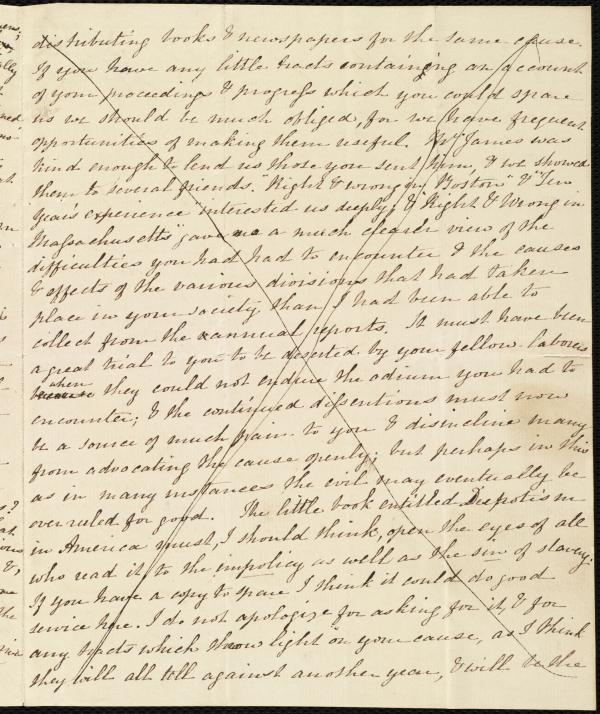 distributing books & newspapers for the same cause.
If you have any little tracts containing an account
of your proceedings & progress which you could spare
us we should be much obliged, for we have frequent
opportunities of making them useful. Mrs James was
kind enough to lend us those you sent him, & we showed
them to several friends. "Right & wrong in Boston" & "Ten
Year's experience" interested us deeply; & "Right & Wrong in
Massachusetts" gave me a much clearer view of the
difficulties you had had to encounter & the causes
& effects of the various divisions that had taken
place in your society than I had been able to
collect from the annual reports. It must have been
a great trial to you to be deserted by your fellow-laborers
because when they could not endure the odium you had to
encounter; & the continued dissentions must now
be a source of much pain to you & disincline many
from advocating the cause openly; but perhaps in this
as in many instances the evil may eventually be
overruled for good. The little book entitled Despotism
in America must, I should think, open the eyes of all
who read it, to the impolicy as well as the sin of slavery.
If you have a copy to spare I think it could do good
service here. I do not apologize for asking for it, & for
any tracts which throw light on your cause, as I think
they will all tell against another year, & will be the